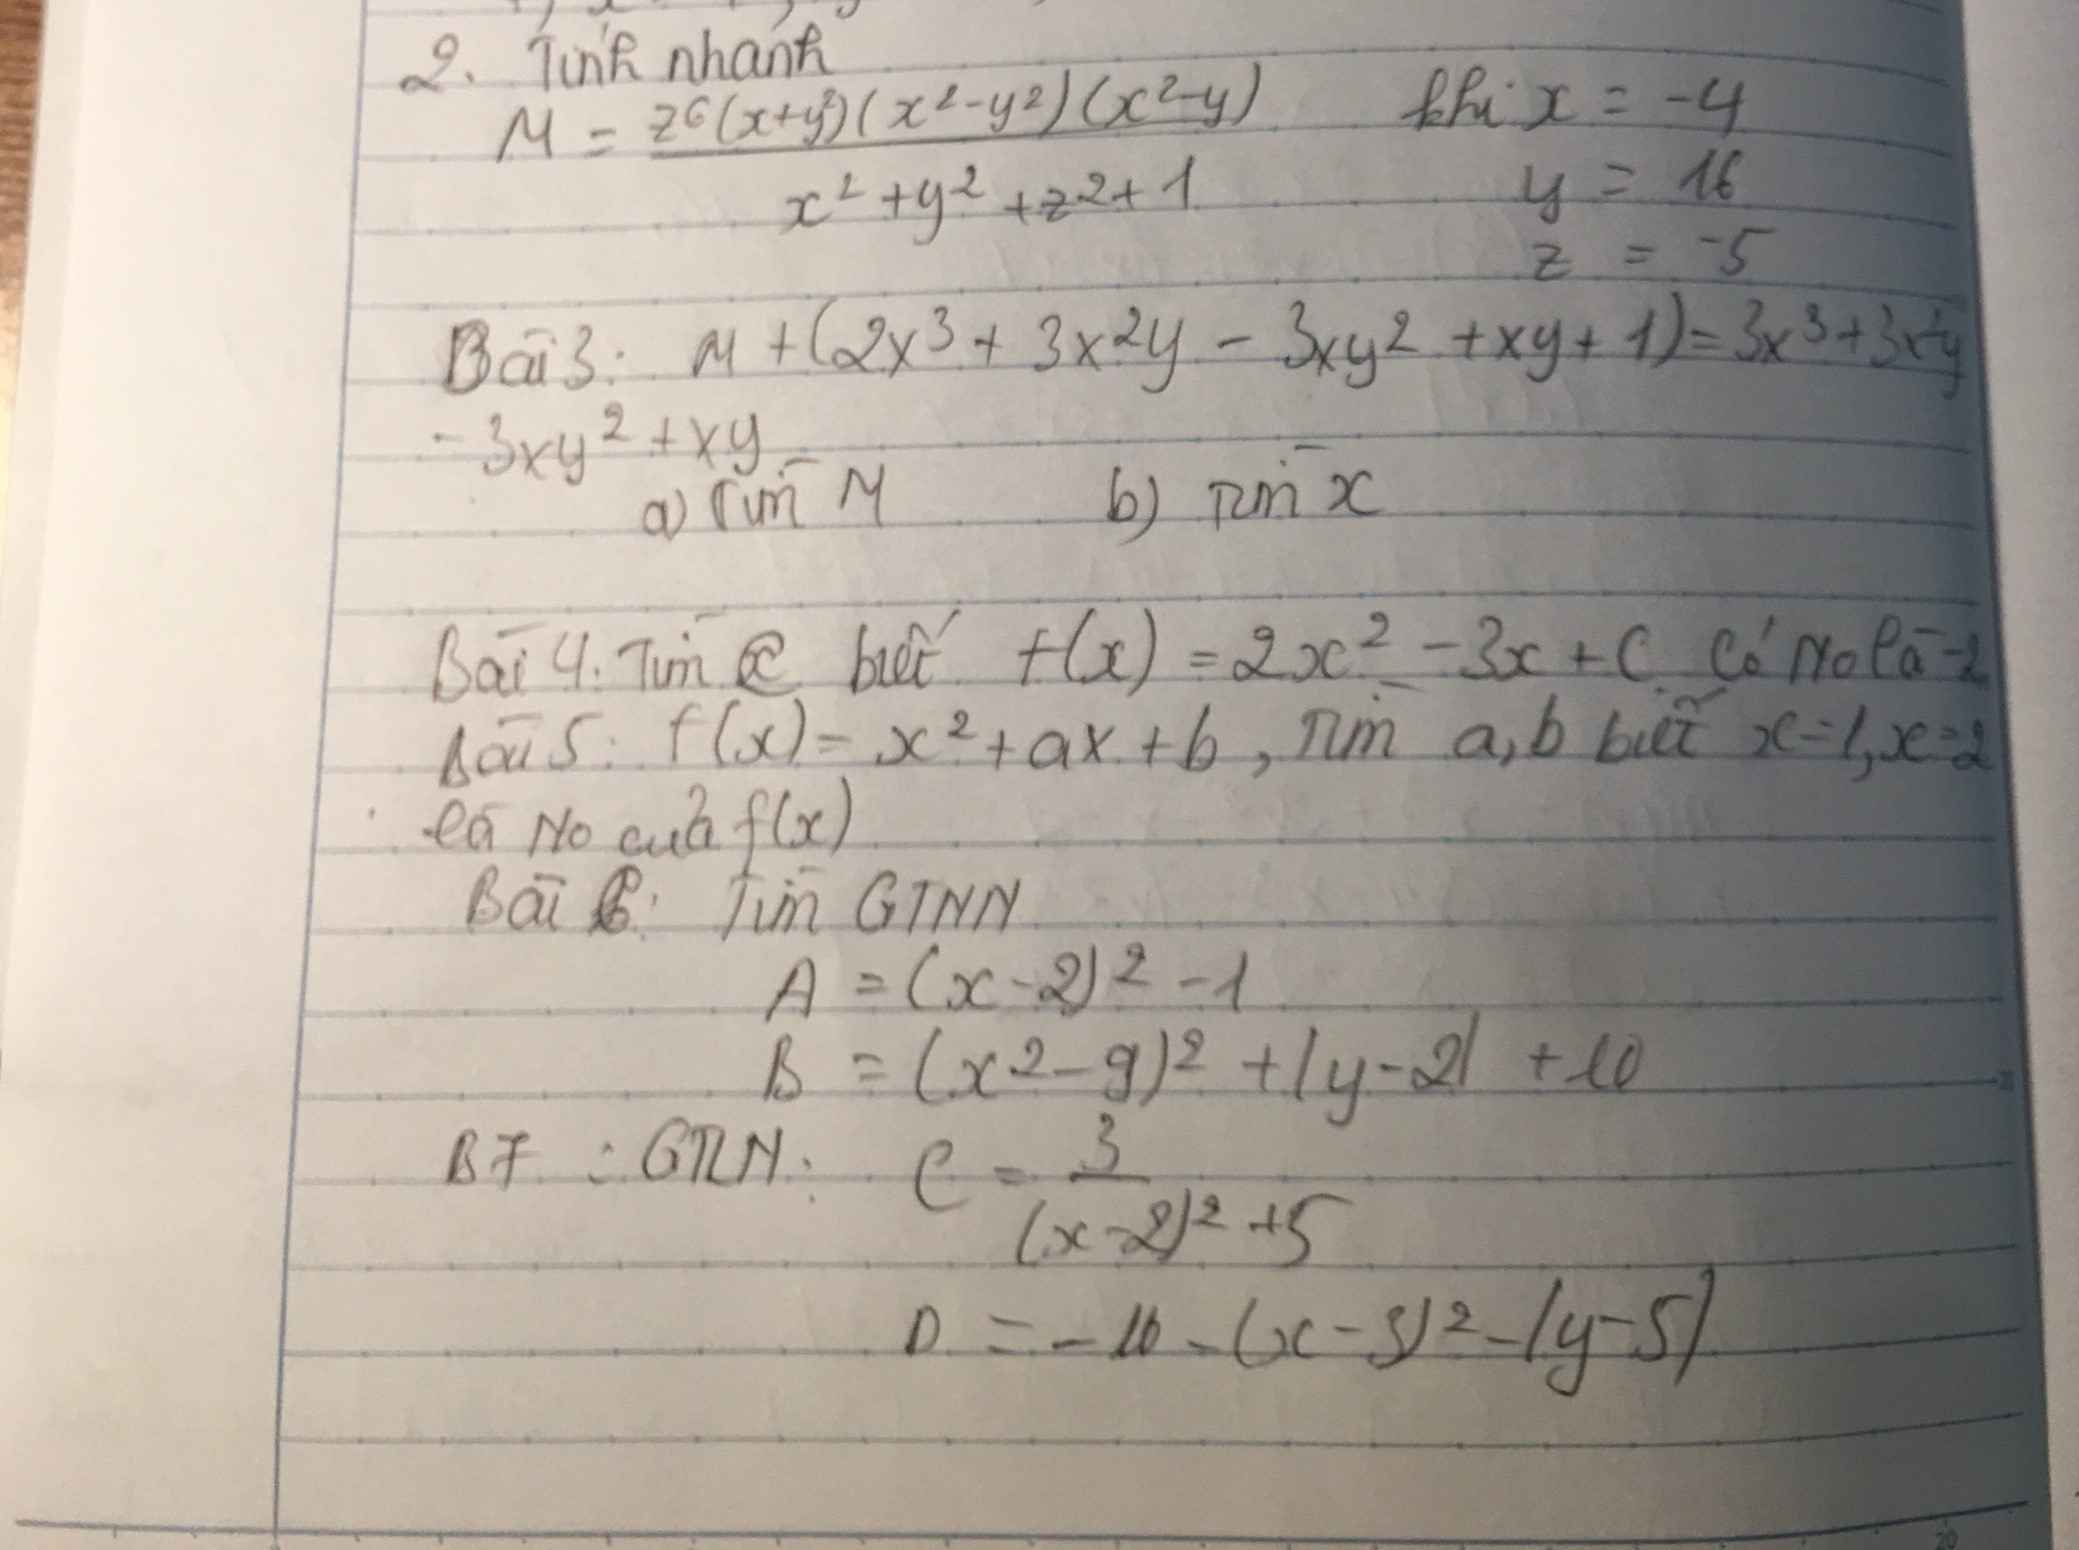 2. Tính nhanh
M = z6(x+y²)(x²-y²)(x²-y) khi x = -4
x² + y² + z² + 1 y = 16
z = -5
Bài 3: M + (2x³ + 3x²y - 3xy² + xy + 1) = 3x³ + 3x²y
- 3xy² + xy
a) Tìm M b) Tìm x
Bài 4. Tìm C biết f(x) = 2x² - 3x + C Có No là -2
Bài 5: f(x) = x² + ax + b, Tìm a, b biết x = 1, x = 2
là No của f(x)
Bài 6: Tìm GTNN
A = (x-2)² - 1
B = (x² - 9)² + |y-2| + 10
B7 : GTLN: C = 3
(x-2)² + 5
D = -10 - (x-3)² - |y-5|